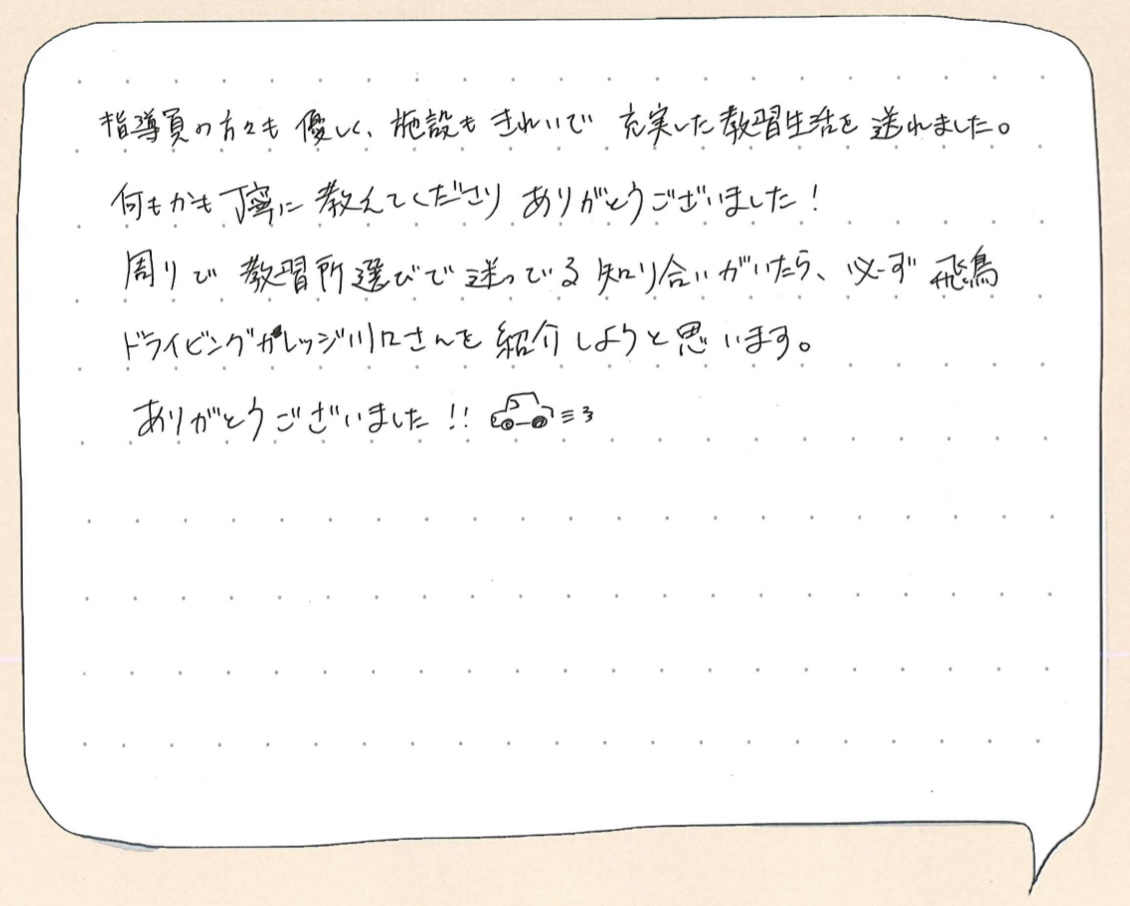 指導員の方々も優しく、施設もきれいで充実した教習生活を送れました。
何もかも丁寧に教えてくださりありがとうございました！
周りで教習所選びで迷っている知り合いがいたら、必ず飛鳥
ドライビングカレッジ川口さんを紹介しようと思います。
ありがとうございました!!